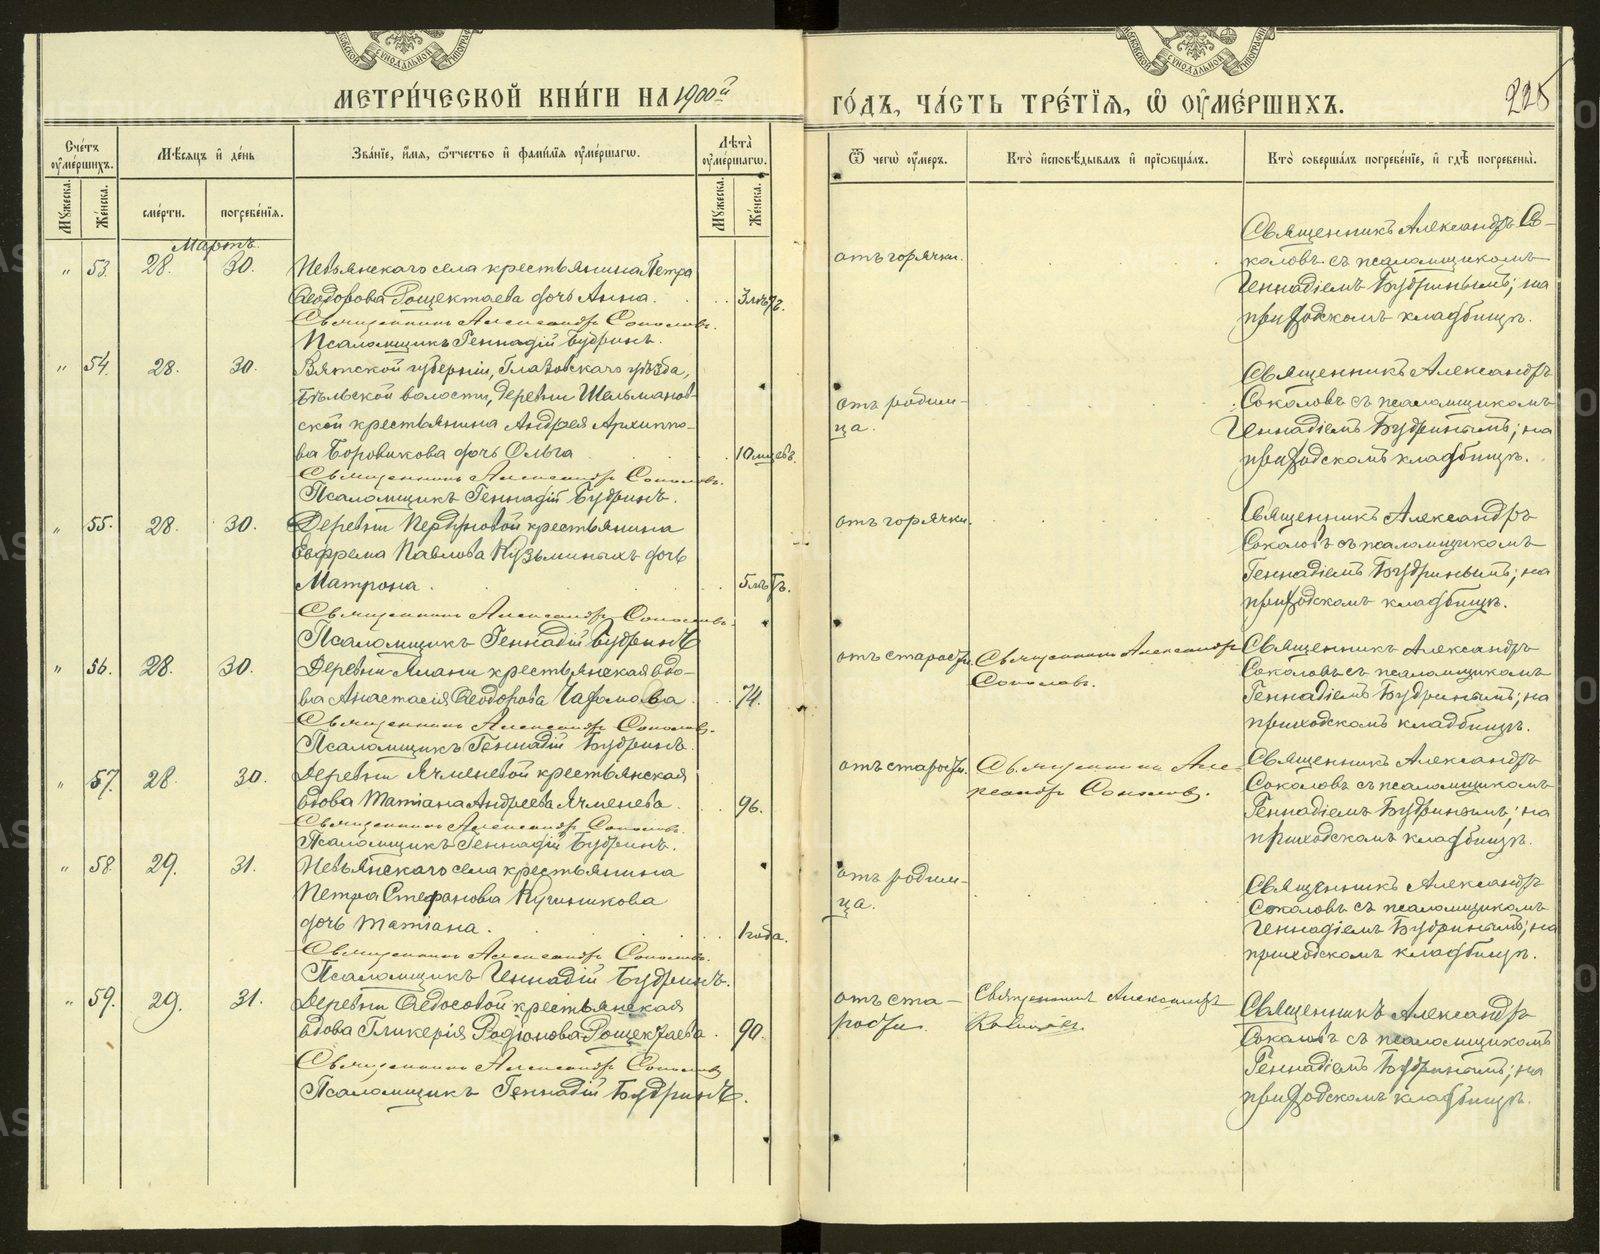 МЕТРИ́ЧЕСКОЙ КНИ́ГИ НА 1900й
ГО́ДЪ, ЧА́СТЬ ТРЕ́ТІѦ, Ѡ ОУМЕ́РШИХЪ.
225
Сче́тъ оумершихъ.
Мѣсяцъ и де́нь
Зва́ніе, и́мя, ѻтчество и фами́лія оуме́ршагѡ.
Лѣта̀ оуме́ршагѡ.
Ѿ чегѡ̀ оу́меръ.
Кто̀ исповѣ́дывалъ и пріѡбща́лъ.
Кто̀ соверша́лъ погребе́ніе, и гдѣ̀ погребены̀.
Мꙋжеска.
Же́нска.
сме́рти.
погребе́нїя.
Мꙋжеска.
Же́нска.
Мартъ.
" 53. 28. 30. Невьянскаго села крестьянина Петра
Ѳеодорова Рощектаева дочь Анна. 3 лѣтъ.
Священникъ Александръ Соколовъ.
Псаломщикъ Геннадій Будринъ.
отъ горячки.
Священникъ Александръ Со-
коловъ съ псаломщикомъ
Геннадіемъ Будринымъ; на
приходскомъ кладбищѣ.
" 54. 28. 30. Вятской губерніи, Глазовскаго уѣзда,
Бѣльской волости, деревни Шельманов-
ской крестьянина Андрея Архиппо-
ва Боровикова дочь Ольга 10 мѣсяцевъ.
Священникъ Александръ Соколовъ.
Псаломщикъ Геннадій Будринъ.
отъ родим-
ца.
Священникъ Александръ
Соколовъ съ псаломщикомъ
Геннадіемъ Будринымъ; на
приходскомъ кладбищѣ.
" 55. 28. 30. Деревни Пердуновой крестьянина
Евфрема Павлова Кузьминыхъ дочь
Матрона. 5 лѣтъ.
Священникъ Александръ Соколовъ.
Псаломщикъ Геннадій Будринъ
отъ горячки.
Священникъ Александръ
Соколовъ съ псаломщикомъ
Геннадіемъ Будринымъ; на
приходскомъ кладбищѣ.
" 56. 28. 30. Деревни Ялани крестьянская вдо-
ва Анастасія Ѳеодорова 74.
Священникъ Александръ Соколовъ.
Псаломщикъ Геннадій Будринъ.
отъ старости. Священникъ Александръ
Соколовъ.
Священникъ Александръ
Соколовъ съ псаломщикомъ
Геннадіемъ Будринымъ; на
приходскомъ кладбищѣ.
" 57. 28. 30. Деревни Ячменевой крестьянская
вдова Татіана Андреева Ячменева. 96.
Священникъ Александръ Соколовъ.
Псаломщикъ Геннадій Будринъ.
отъ старости. Священникъ Але-
ксандръ Соколовъ.
Священникъ Александръ
Соколовъ съ псаломщикомъ
Геннадіемъ Будринымъ; на
приходскомъ кладбищѣ.
" 58. 29. 31. Невьянскаго села крестьянина
Петра Стефанова Кучинникова
дочь Татіана. 1 года.
Священникъ Александръ Соколовъ.
Псаломщикъ Геннадій Будринъ.
отъ родим-
ца.
Священникъ Александръ
Соколовъ съ псаломщикомъ
Геннадіемъ Будринымъ; на
приходскомъ кладбищѣ.
" 59. 29. 31. Деревни Ѳедосовой крестьянская
вдова Гликерія Родіонова Рощектаева. 90.
Священникъ Александръ Соколовъ
Псаломщикъ Геннадій Будринъ.
отъ ста-
рости. Священникъ Александръ
Соколовъ.
Священникъ Александръ
Соколовъ съ псаломщикомъ
Геннадіемъ Будринымъ; на
приходскомъ кладбищѣ.